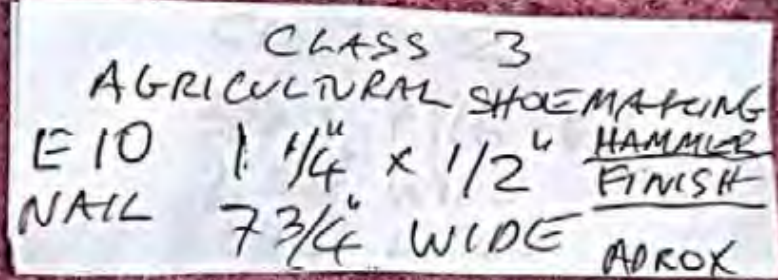 CLASS 3
AGRICULTURAL SHOEMAKING
E10 1 1/4" x 1/2" HAMMER
FINISH
NAIL 7 3/4" WIDE
APROX